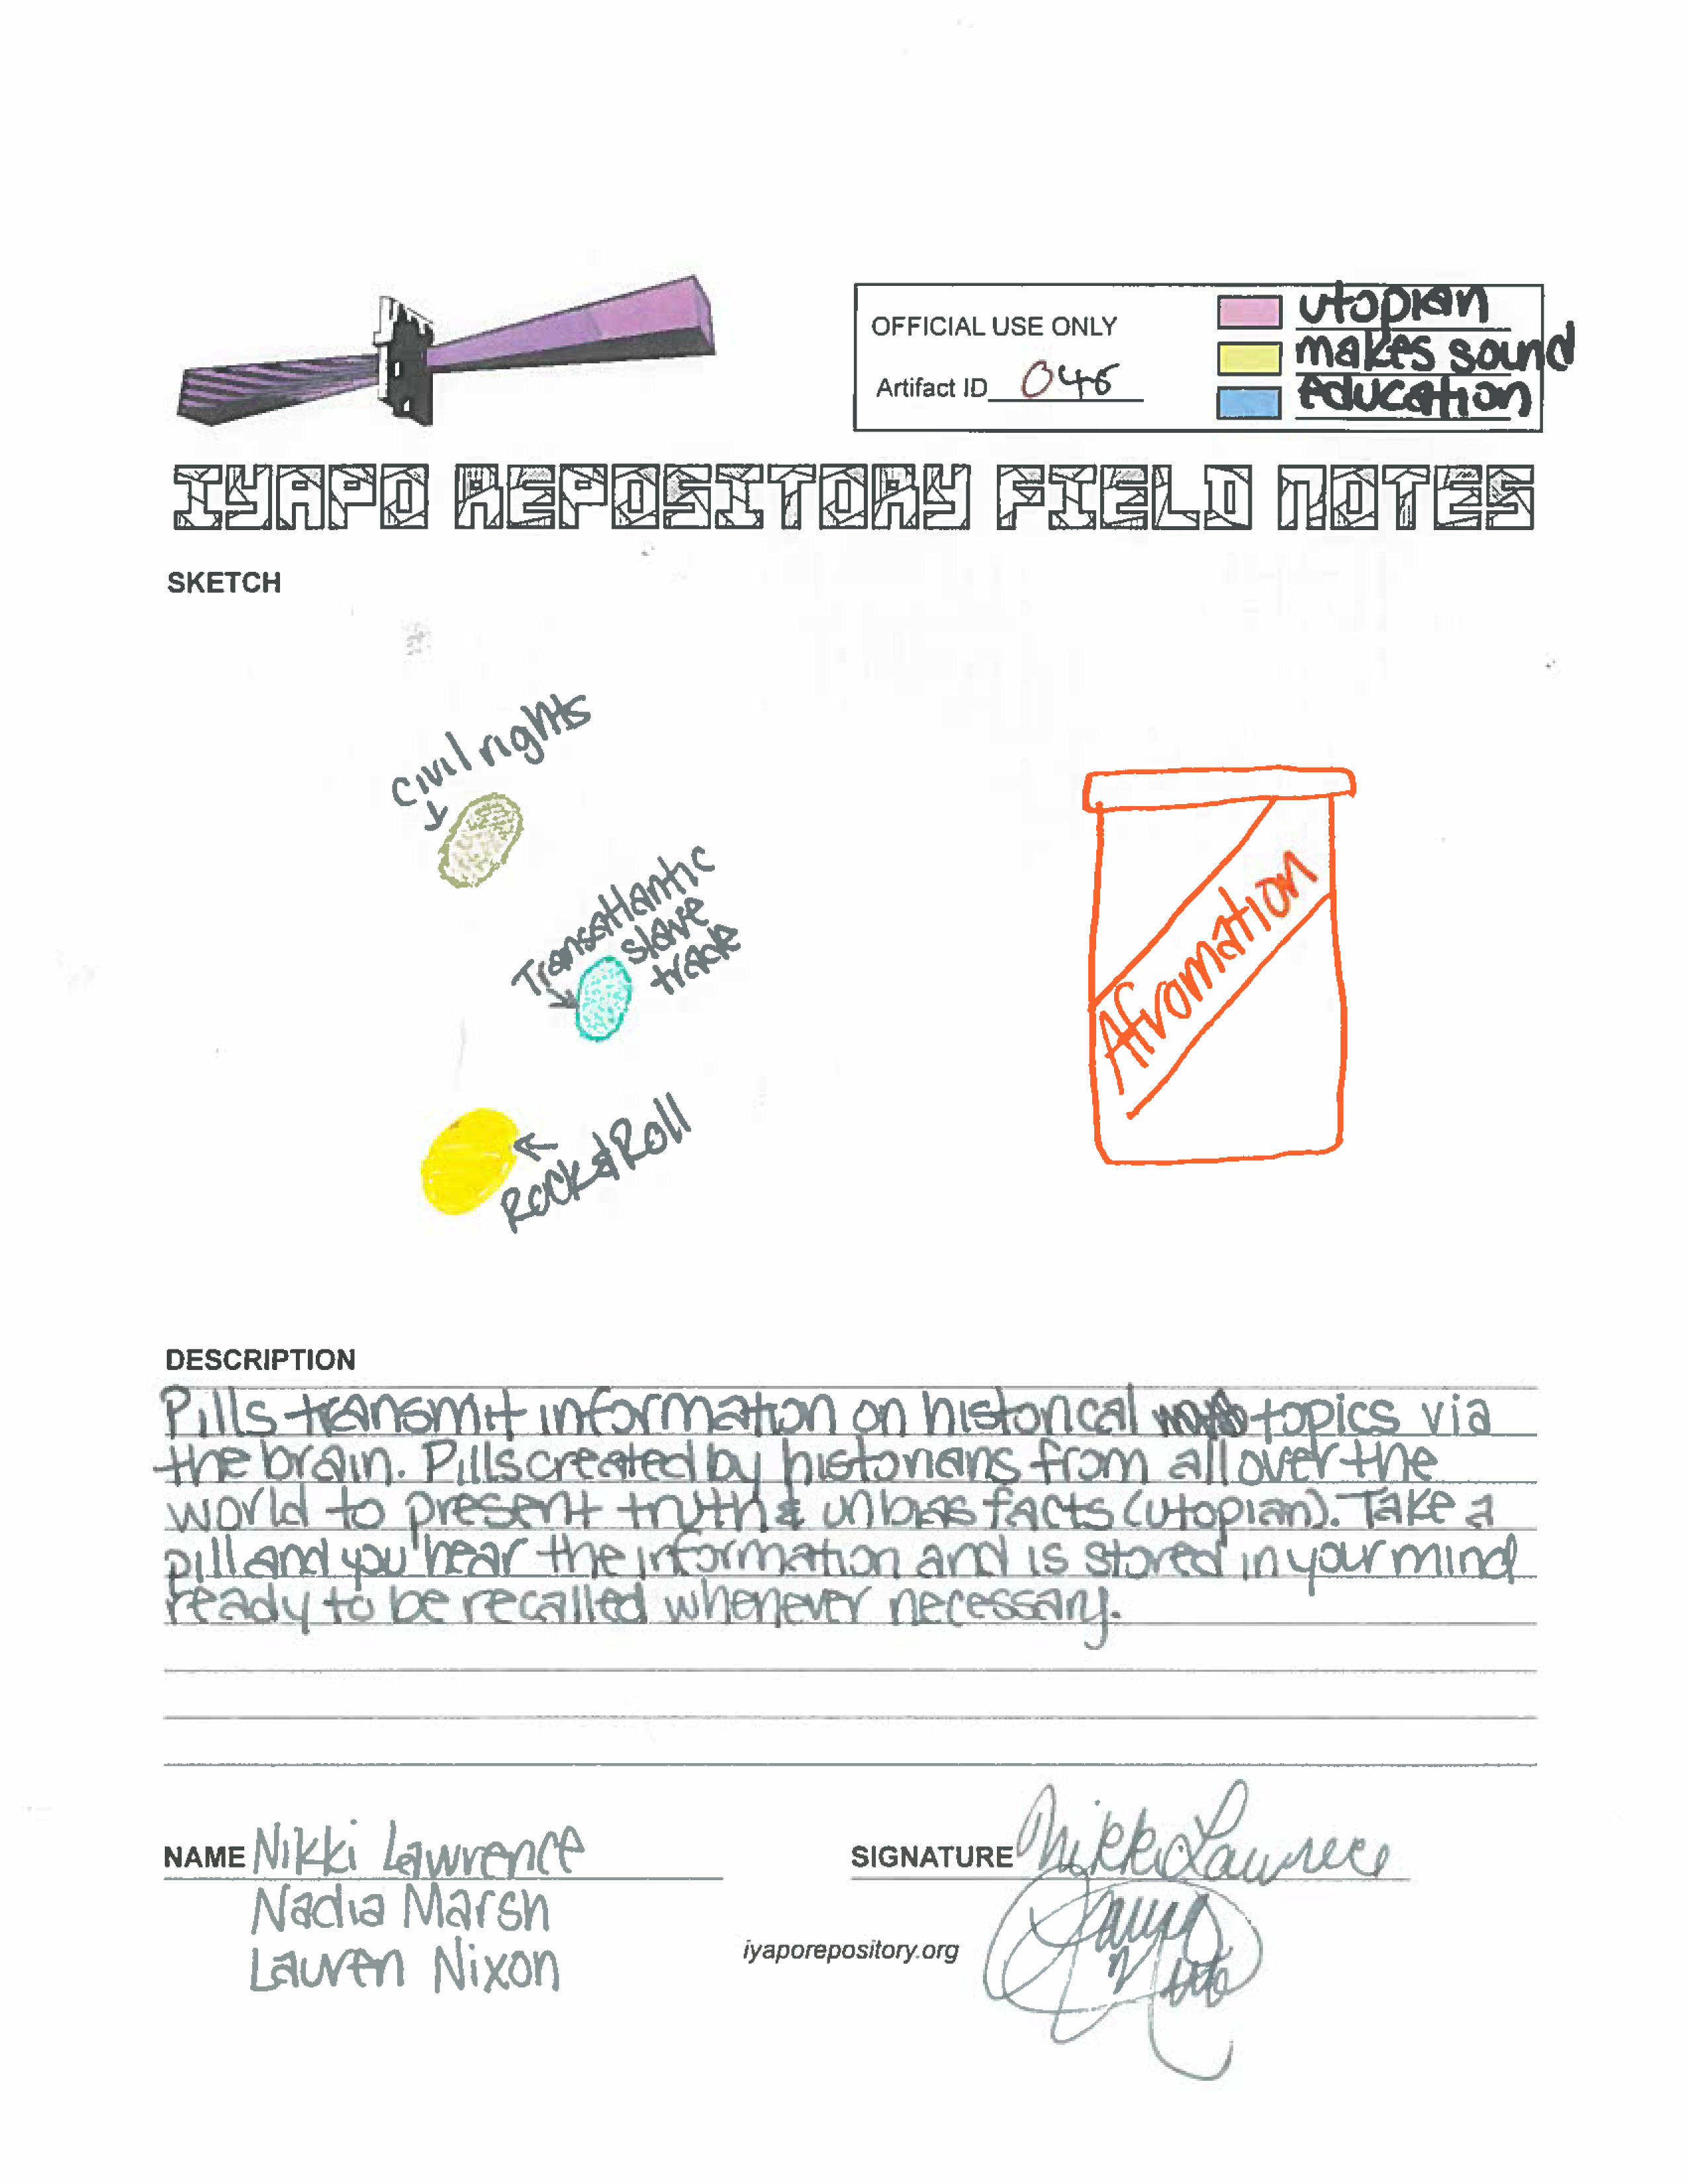 OFFICIAL USE ONLY
Artifact ID 046
utopian
makes sound
education
IYAPO REPOSITORY FIELD NOTES
SKETCH
Civil rights
Transatlantic
slave
trade
Rock & Roll
Afromation
DESCRIPTION
Pills transmit information on historical topics via
the brain. Pills created by historians from all over the
world to present truth & unbias facts (utopian). Take a
pill and you hear the information and is stored in your mind
ready to be recalled whenever necessary.
NAME Nikki Lawrence
SIGNATURE Nikki Lawrence
Nadia Marsh
Lauren Nixon
iyaporepository.org